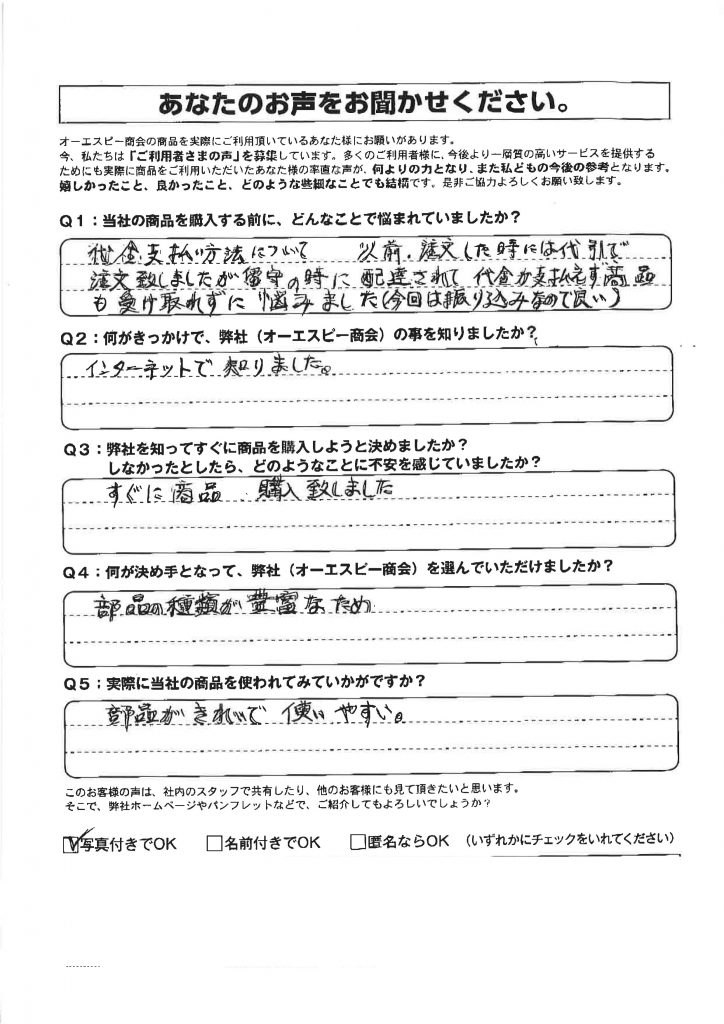 あなたのお声をお聞かせください。
オーエスピー商会の商品を実際にご利用頂いているあなた様にお願いがあります。
今、私たちは「ご利用者さまの声」を募集しています。多くのご利用者様に、今後より一層質の高いサービスを提供する
ためにも実際に商品をご利用いただいたあなた様の率直な声が、何よりの力となり、また私どもの今後の参考となります。
嬉しかったこと、良かったこと、どのような些細なことでも結構です。是非ご協力よろしくお願い致します。
Q1：当社の商品を購入する前に、どんなことで悩まれていましたか？
代金支払い方法について 以前、注文した時には代引で
注文致しましたが留守の時に配達されて代金が支払えず商品
も受け取れずに悩みました(今回は振り込みなので良い)
Q2：何がきっかけで、弊社（オーエスピー商会）の事を知りましたか？
インターネットで知りました。
Q3：弊社を知ってすぐに商品を購入しようと決めましたか？
しなかったとしたら、どのようなことに不安を感じていましたか？
すぐに商品、購入致しました
Q4：何が決め手となって、弊社（オーエスピー商会）を選んでいただけましたか？
部品の種類が豊富なため
Q5：実際に当社の商品を使われてみていかがですか？
部品がきれいで使いやすい。
このお客様の声は、社内のスタッフで共有したり、他のお客様にも見て頂きたいと思います。
そこで、弊社ホームページやパンフレットなどで、ご紹介してもよろしいでしょうか？
☑写真付きでOK □名前付きでOK □匿名ならOK （いずれかにチェックをいれてください）